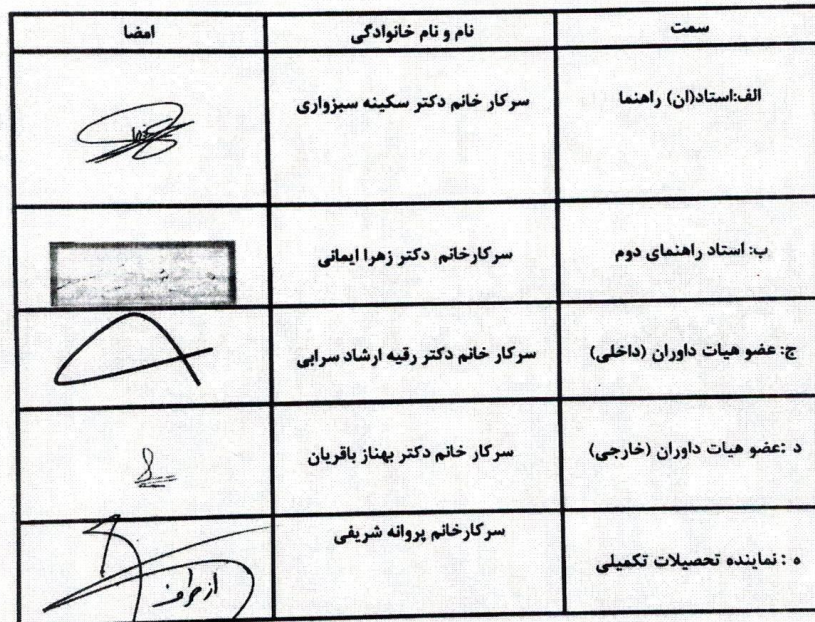 سمت نام و نام خانوادگی امضا
الف:استاد(ان) راهنما سرکار خانم دکتر سکینه سبزواری
ب: استاد راهنمای دوم سرکارخانم دکتر زهرا ایمانی
ج: عضو هیات داوران (داخلی) سرکار خانم دکتر رقیه ارشاد سرابی
د :عضو هیات داوران (خارجی) سرکار خانم دکتر بهناز باقریان
ه : نماینده تحصیلات تکمیلی سرکارخانم پروانه شریفی
از طرف